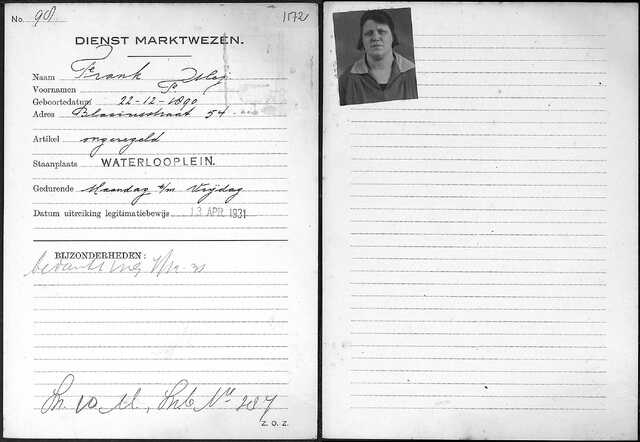 No. 98 1572
DIENST MARKTWEZEN.
Naam Frank
Voornamen S.
Geboortedatum 22-12-1890
Adres Blasiusstraat 54
Artikel ongeregeld
Staanplaats WATERLOOPLEIN.
Gedurende Maandag t/m Vrijdag
Datum uitreiking legitimatiebewijs 13 APR. 1931
BIJZONDERHEDEN:
Z. O. Z.